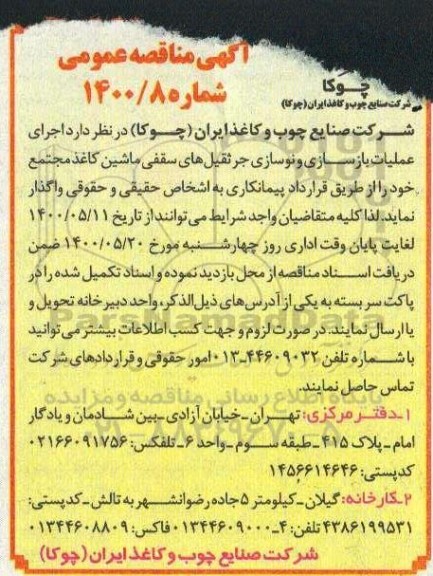 آگهی مناقصه عمومی
شماره ۱۴۰۰/۸
چوکا
شرکت صنایع چوب و کاغذ ایران (چوکا)
شرکت صنایع چوب و کاغذ ایران (چوکا) در نظر دارد اجرای
عملیات بازسازی و نوسازی جرثقیل‌های سقفی ماشین کاغذ مجتمع
خود را از طریق قرارداد پیمانکاری به اشخاص حقیقی و حقوقی واگذار
نماید. لذا کلیه متقاضیان واجد شرایط می‌توانند از تاریخ ۱۴۰۰/۰۵/۱۱
لغایت پایان وقت اداری روز چهارشنبه مورخ ۱۴۰۰/۰۵/۲۰ ضمن
دریافت اسناد مناقصه از محل بازدید نموده و اسناد تکمیل شده را در
پاکت سر بسته به یکی از آدرس‌های ذیل‌الذکر، واحد دبیرخانه تحویل و
یا ارسال نمایند. در صورت لزوم و جهت کسب اطلاعات بیشتر می‌توانید
با شماره تلفن ۴۴۶۰۹۰۳۲-۰۱۳ امور حقوقی و قراردادهای شرکت
تماس حاصل نمایند.
۱-دفتر مرکزی: تهران-خیابان آزادی-بین شادمان و یادگار
امام-پلاک ۴۱۵-طبقه سوم-واحد ۶-تلفکس: ۰۲۱۶۶۰۹۱۷۵۶
کدپستی: ۱۴۵۶۶۱۴۶۴۶
۲-کارخانه: گیلان-کیلومتر ۵ جاده رضوانشهر به تالش-کدپستی:
۴۳۸۶۱۹۹۵۳۱ تلفن: ۴-۰۱۳۴۴۶۰۹۰۰۰ فاکس: ۰۱۳۴۴۶۰۸۸۰۹
شرکت صنایع چوب و کاغذ ایران (چوکا)
ParsNamadData
پایگاه اطلاع رسانی مناقصه و مزایده